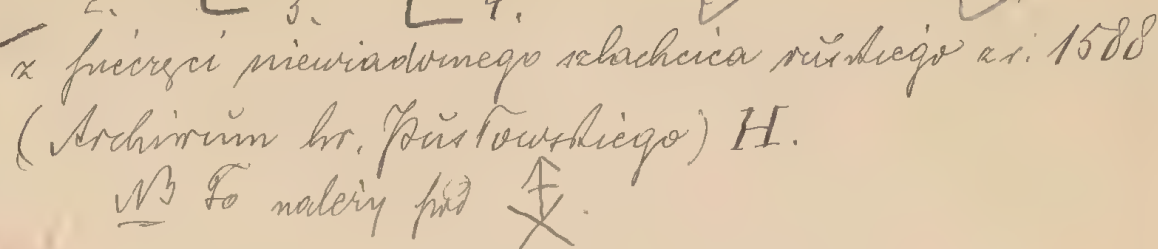 2. 3. 4.
z pieczęci niewiadomego szlachcica ruskiego z r. 1588
(Archiwum hr. Pusłowskiego) H.
NB To należy pod